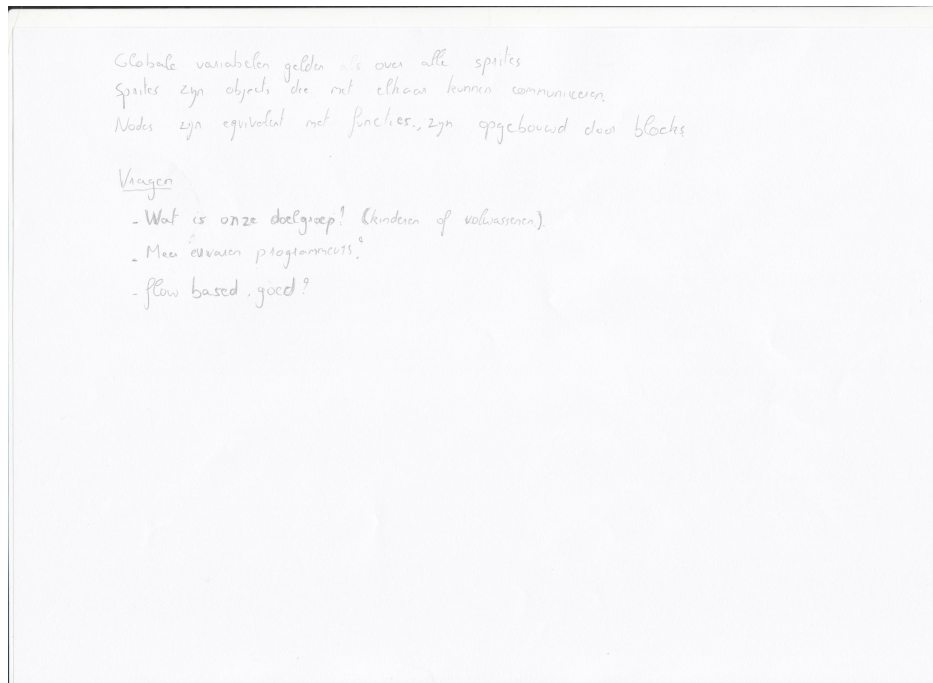 Globale variabelen gelden als over alle sprites
Sprites zijn objects die met elkaar kunnen communiceren.
Nodes zijn equivalent met functies., zijn opgebouwd door blocks
Vragen
- Wat is onze doelgroep? (kinderen of volwassenen).
- Meer ervaren programmeurs?
- flow based, goed?